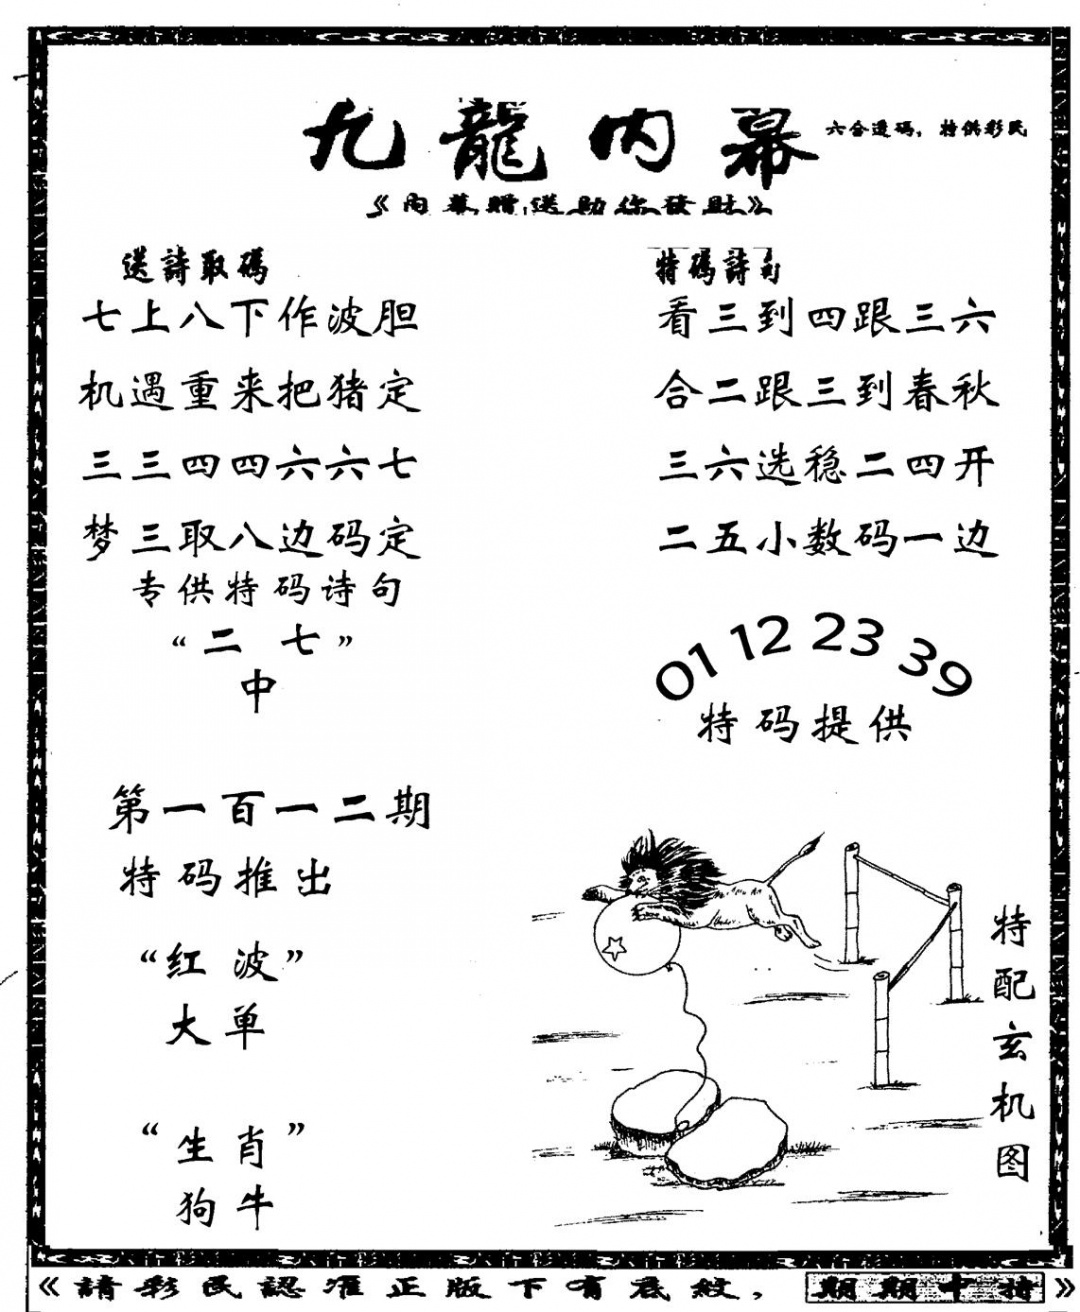 九龍内幕
六合透码，特供彩民
《内幕贈送助你發財》
送詩取碼
七上八下作波胆
机遇重来把猪定
三三四四六六七
梦三取八边码定
专供特码诗句
“二七”
中
第一百一二期
特码推出
“红波”
大单
“生肖”
狗牛
特碼詩句
看三到四跟三六
合二跟三到春秋
三六选稳二四开
二五小数码一边
01 12 23 39
特码提供
特配玄机图
《請彩民認准正版下有底紋，期期中特》